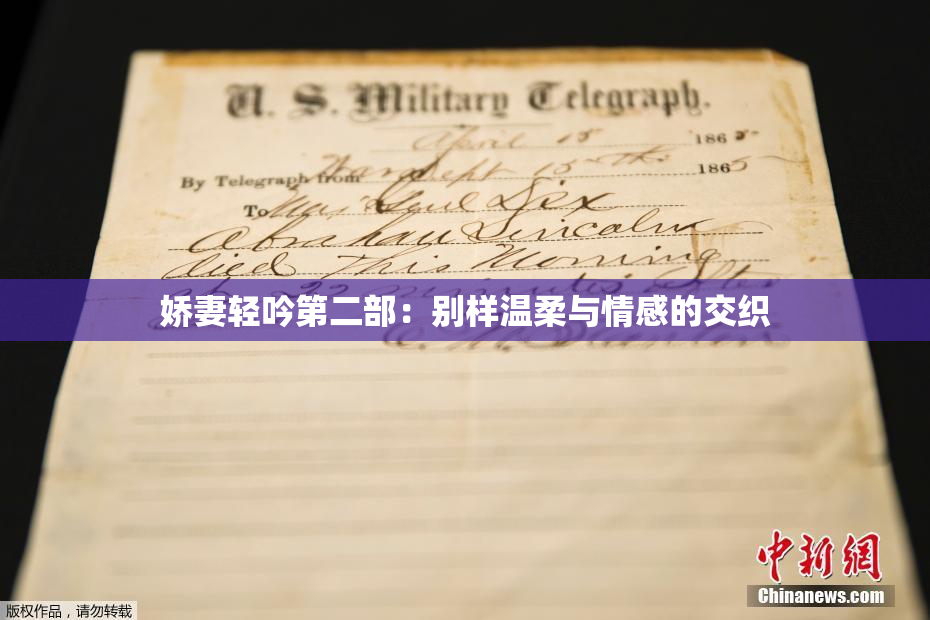 U. S. Military Telegraph.
April 15 1865.
By Telegraph from War Dept 15th 1865
To Maj Genl Dix
Abraham Lincoln
died This Morning
at 22 minutes after
娇妻轻吟第二部：别样温柔与情感的交织
E. M. Stanton
中新网
Chinanews.com
版权作品，请勿转载